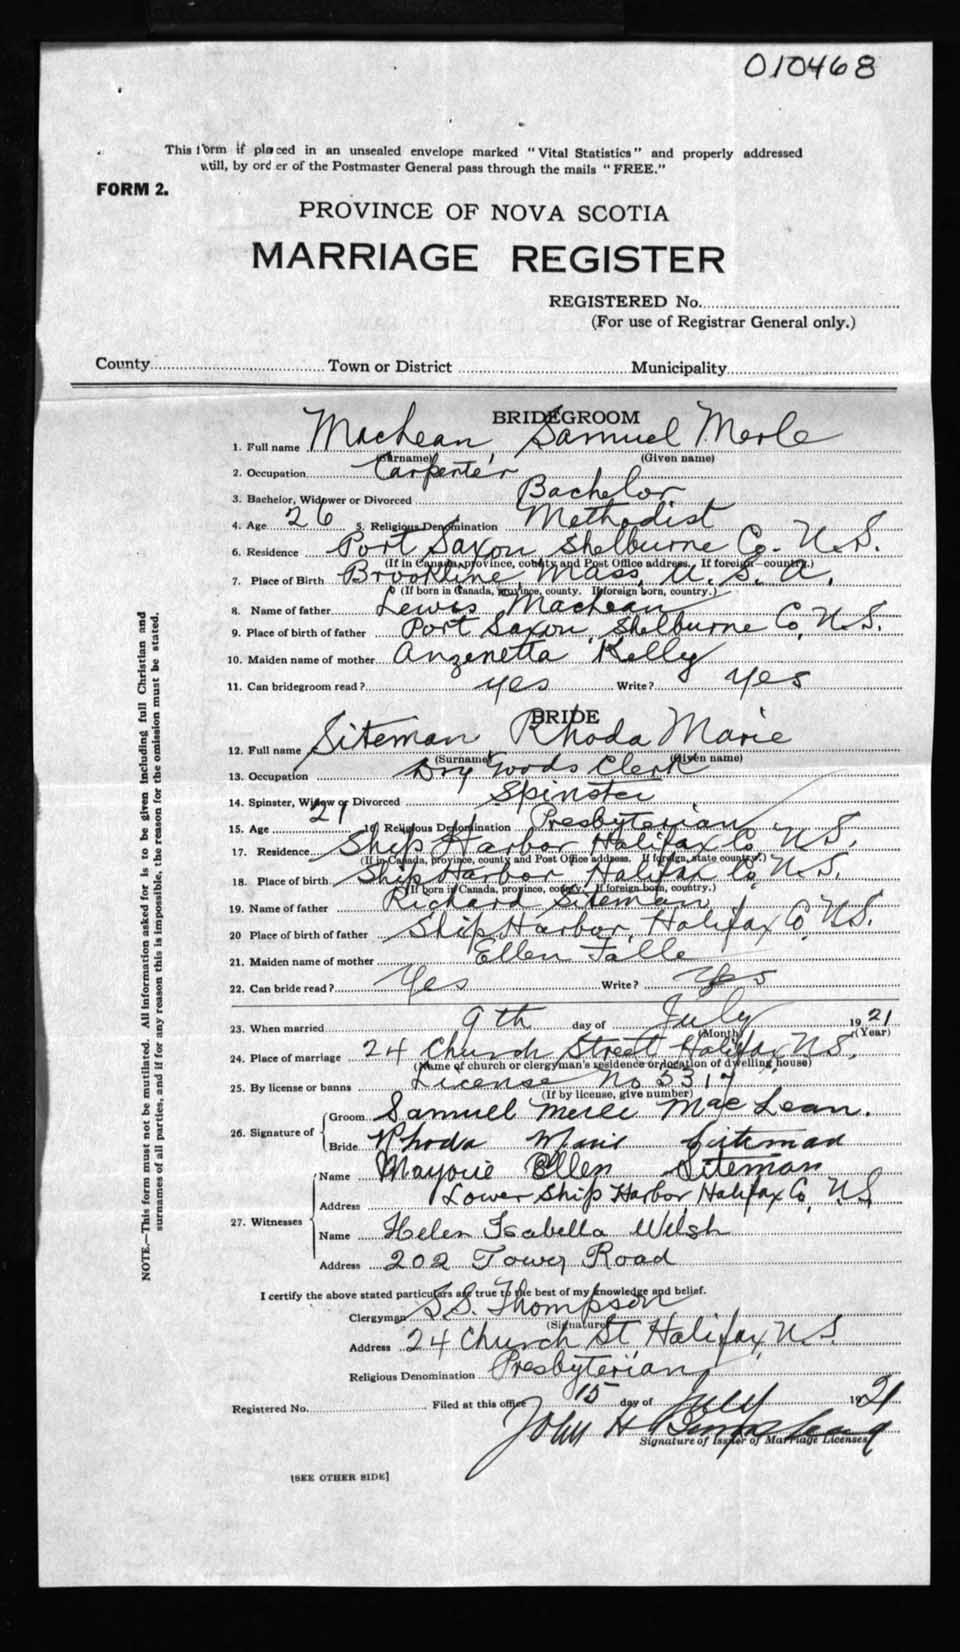 010468
This form if placed in an unsealed envelope marked "Vital Statistics" and properly addressed
will, by order of the Postmaster General pass through the mails "FREE."
FORM 2.
PROVINCE OF NOVA SCOTIA
MARRIAGE REGISTER
REGISTERED No.
(For use of Registrar General only.)
County Town or District Municipality
BRIDEGROOM
1. Full name MacLean Samuel Merle
(Surname) (Given name)
2. Occupation Carpenter
3. Bachelor, Widower or Divorced Bachelor
4. Age 26 5. Religious Denomination Methodist
6. Residence Port Saxon, Shelburne Co. N.S.
(If in Canada, province, county and Post Office address. If foreign—country.)
7. Place of Birth Brookline, Mass, U.S.A.
(If born in Canada, province, county. If foreign born, country.)
8. Name of father Lewis MacLean
9. Place of birth of father Port Saxon, Shelburne Co, N.S.
10. Maiden name of mother Anzenetta Kelly
11. Can bridegroom read? yes Write? yes
BRIDE
12. Full name Siteman Rhoda Marie
(Surname) (Given name)
13. Occupation Dry Goods Clerk
14. Spinster, Widow or Divorced Spinster
15. Age 21 16. Religious Denomination Presbyterian
17. Residence Ship Harbor Halifax Co N.S.
(If in Canada, province, county and Post Office address. If foreign, state country.)
18. Place of birth Ship Harbor, Halifax Co, N.S.
(If born in Canada, province, county. If foreign born, country.)
19. Name of father Richard Siteman
20 Place of birth of father Ship Harbor, Halifax Co, N.S.
21. Maiden name of mother Ellen Falle
22. Can bride read? Yes Write? Yes
23. When married 9th day of July 1921
(Month) (Year)
24. Place of marriage 24 Church Street Halifax, N.S.
(Name of church or clergyman's residence or location of dwelling house)
25. By license or banns License No 5317
(If by license, give number)
26. Signature of Groom Samuel Merle MacLean.
Bride Rhoda Marie Siteman
27. Witnesses Name Marjorie Ellen Siteman
Address Lower Ship Harbor Halifax Co, N.S
Name Helen Isabella Welsh
Address 202 Tower Road
I certify the above stated particulars are true to the best of my knowledge and belief.
Clergyman S.S. Thompson
(Signature)
Address 24 Church St, Halifax, N.S.
Religious Denomination Presbyterian
Registered No. Filed at this office 15 day of July 1921
John H
Signature of Issuer of Marriage Licenses
[SEE OTHER SIDE]
NOTE.—This form must not be mutilated. All information asked for is to be given including full Christian and
surnames of all parties, and if for any reason this is impossible, the reason for the omission must be stated.